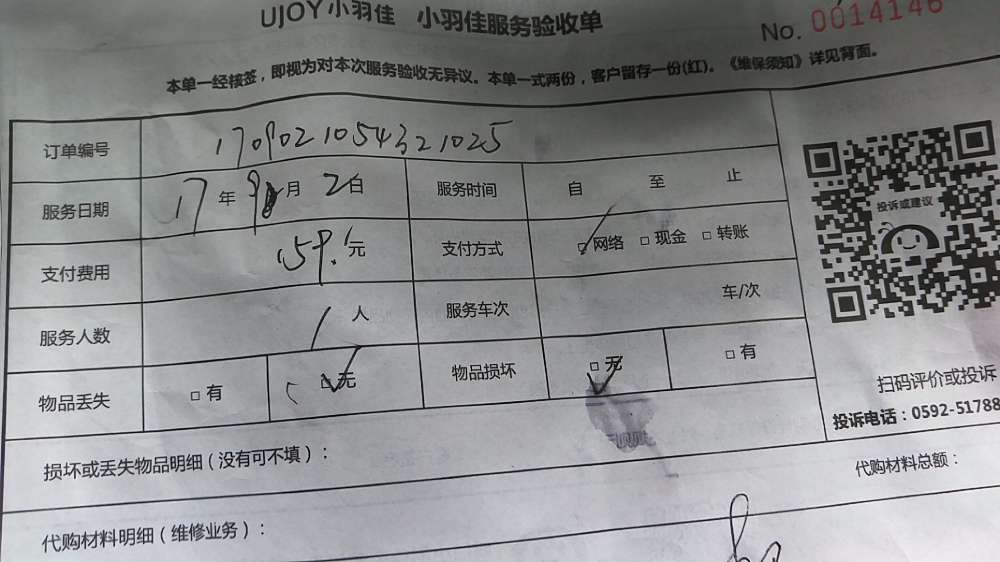 UJOY小羽佳 小羽佳服务验收单
No. 0014146
本单一经核签，即视为对本次服务验收无异议。本单一式两份，客户留存一份(红)。《维保须知》详见背面。
订单编号 170902105432 1025
服务日期 17年9月2日 服务时间 自 至 止
支付费用 59.1元 支付方式 □网络 □现金 □转账
服务人数 1人 服务车次 车/次
物品丢失 □有 □无 物品损坏 □无 □有
投诉或建议
扫码评价或投诉
投诉电话：0592-51788
损坏或丢失物品明细（没有可不填）：
代购材料总额：
代购材料明细（维修业务）：